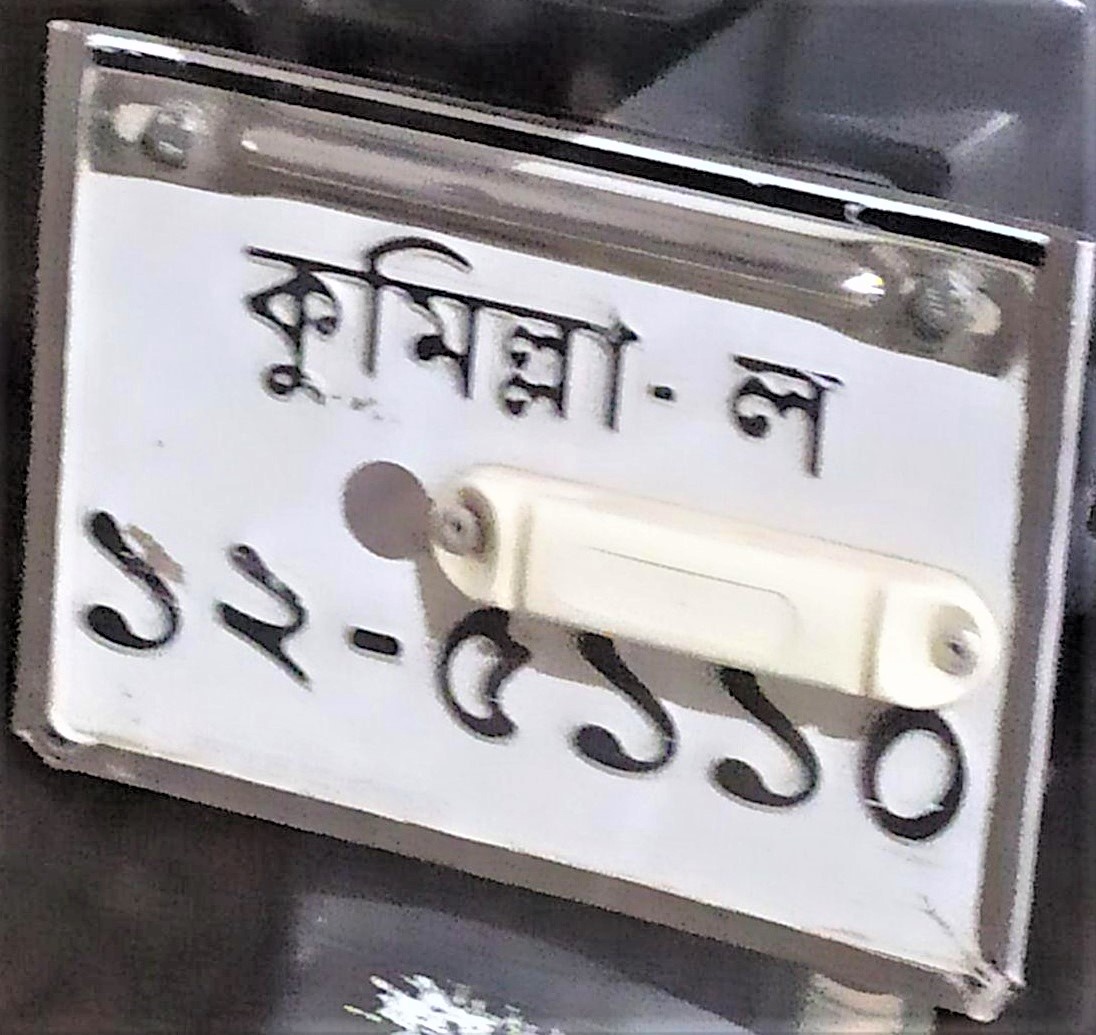 কুমিল্লা - ল
১২-৫১১০